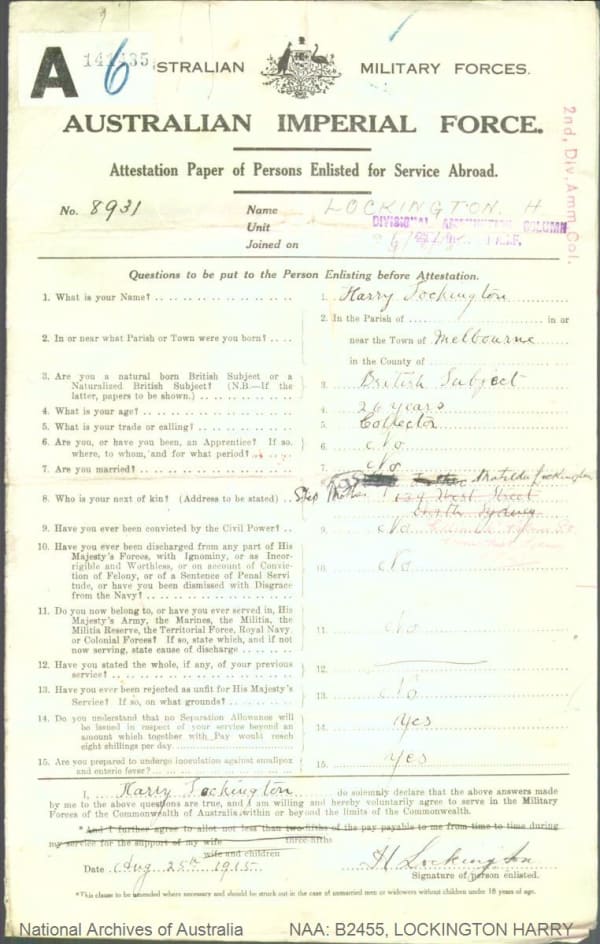 A 6
AUSTRALIAN MILITARY FORCES.
AUSTRALIAN IMPERIAL FORCE.
Attestation Paper of Persons Enlisted for Service Abroad.
2nd, Div. Amm Col.
No. 8931 Name LOCKINGTON. H
Unit DIVISIONAL AMMUNITION COLUMN
Joined on
Questions to be put to the Person Enlisting before Attestation.
1. What is your Name? 1. Harry Lockington
2. In the Parish of in or
2. In or near what Parish or Town were you born? near the Town of Melbourne
in the County of
3. Are you a natural born British Subject or a
Naturalized British Subject? (N.B.—If the 3. British Subject
latter, papers to be shown.)
4. What is your age? 4. 26 years
5. What is your trade or calling? 5. Collector
6. Are you, or have you been, an Apprentice? If so, 6. No
where, to whom, and for what period?
7. Are you married? 7. No
Matilda Lockington
8. Who is your next of kin? (Address to be stated) Step Mother 134 West Street
North Sydney
9. Have you ever been convicted by the Civil Power? 9. No
10. Have you ever been discharged from any part of His
Majesty's Forces, with Ignominy, or as Incor-
rigible and Worthless, or on account of Convic-
tion of Felony, or of a Sentence of Penal Servi 10. No
tude, or have you been dismissed with Disgrace
from the Navy?
11. Do you now belong to, or have you ever served in, His
Majesty's Army, the Marines, the Militia, the
Militia Reserve, the Territorial Force, Royal Navy 11. No
or Colonial Forces? If so, state which, and if not
now serving, state cause of discharge
12. Have you stated the whole, if any, of your previous 12.
service?
13. Have you ever been rejected as unfit for His Majesty's 13. No
Service? If so, on what grounds?
14. Do you understand that no Separation Allowance will
be issued in respect of your service beyond an 14. Yes
amount which together with Pay would reach
eight shillings per day
15. Are you prepared to undergo inoculation against smallpox 15. Yes
and enteric fever?
I, Harry Lockington do solemnly declare that the above answers made
by me to the above questions are true, and I am willing and hereby voluntarily agree to serve in the Military
Forces of the Commonwealth of Australia within or beyond the limits of the Commonwealth.
*And I further agree to allot not less than two-fifths of the pay payable to me from time to time during
three-fifths
my service for the support of my wife
wife and children
Date Aug 25th 1915 H Lockington
Signature of person enlisted.
*This clause to be amended where necessary and should be struck out in the case of unmarried men or widowers without children under 18 years of age.
National Archives of Australia NAA: B2455, LOCKINGTON HARRY